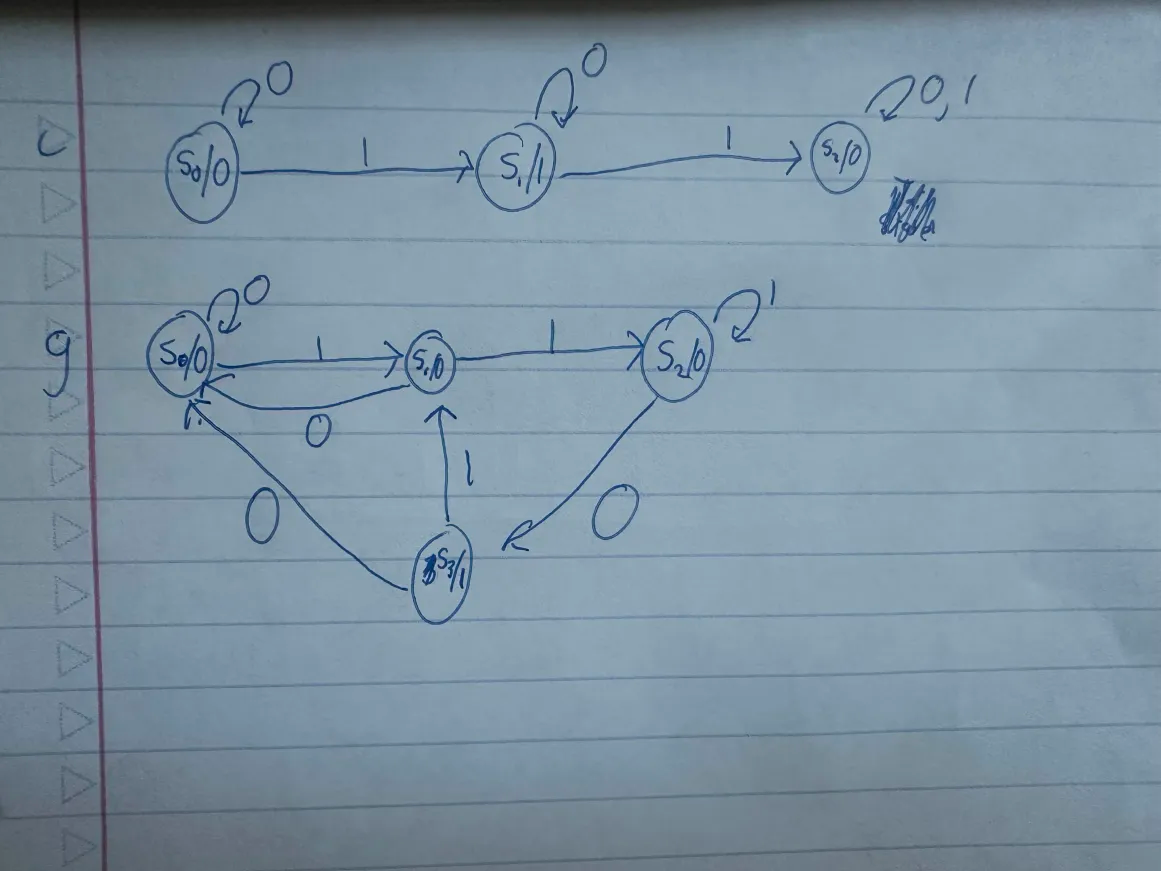 0 0 0, 1
c S₀/0 1 S₁/1 1 S₂/0
0 1
g S₀/0 1 S₁/0 1 S₂/0
0
1
0 0
S₃/1